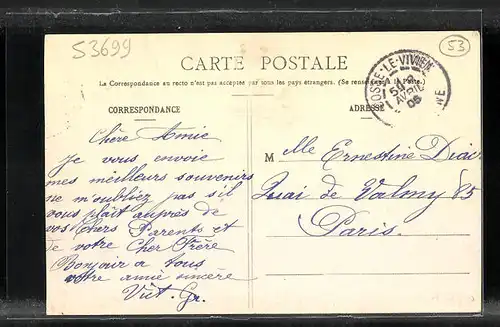 53699
53
CARTE POSTALE
La Correspondance au recto n'est pas acceptée par tous les pays étrangers. (Se renseigner à la Poste.)
CORRESPONDANCE
ADRESSE
COSSÉ-LE-VIVIEN
AVRIL
06
Chère Amie
Je vous envoie
mes meilleurs souvenirs
ne m'oubliez pas s'il
vous plait auprès de
vos Chers Parents et
de votre Cher Frère
Bonjour a tous
votre amie sincère
Vict. Gr.
M lle Ernestine
Quai de Valmy 85
Paris.